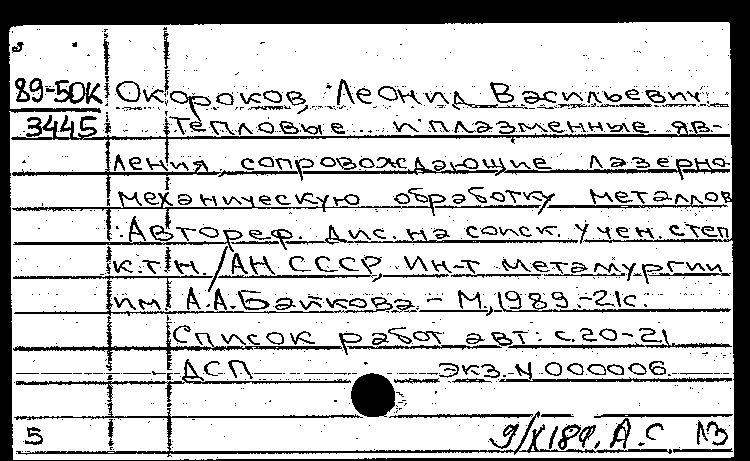 89-50К Окороков, Леонид Васильевич
3445 Тепловые и плазменные яв-
ления, сопровождающие лазерно-
механическую обработку металлов
: Автореф. дис. на соиск. учен. степ
к.т.н. / АН СССР, Ин-т металлургии
им. А.А.Байкова - М., 1989.-21с.
Список работ авт: с.20-21
ДСП экз. N 000006
5 9/X 189. А.С. N3